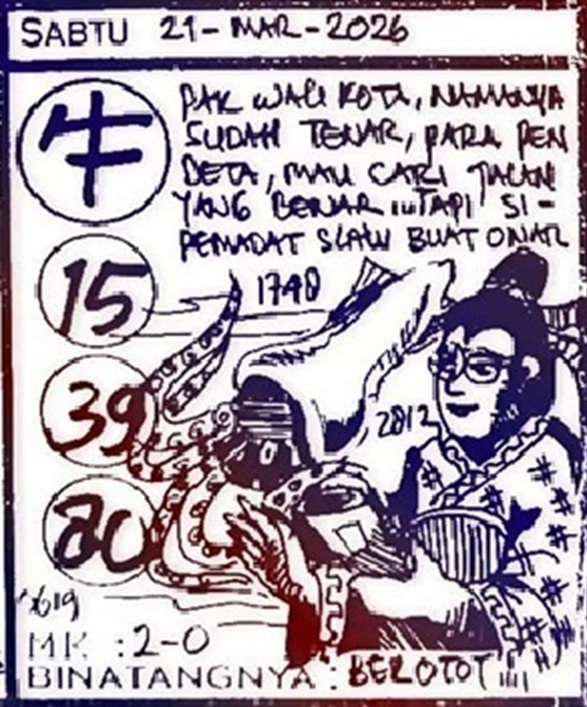 SABTU 21-MAR-2026
牛
PAK WALI KOTA, NAMANYA
SUDAH TENAR, PARA PEN
DETA, MAU CARI JALAN
YANG BENAR...TAPI SI-
PEMADAT SLALU BUAT ONAR
15
1740
39
2812
80
MK :2-0
BINATANGNYA : BEROTOT